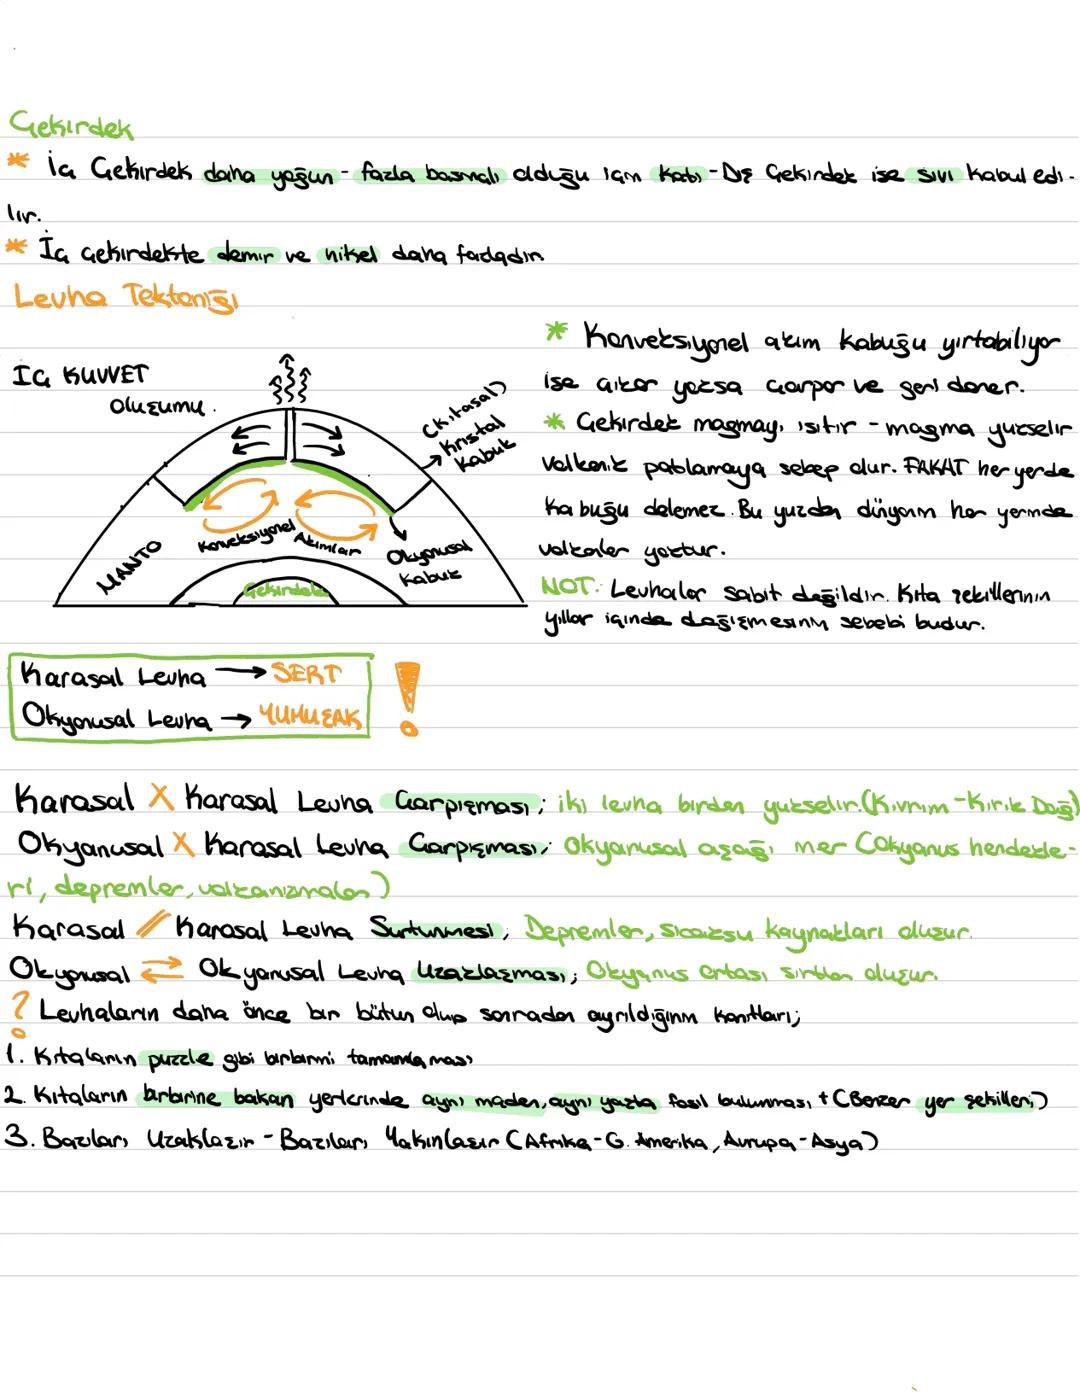 Çekirdek
* İç Çekirdek daha yoğun - fazla basınçlı olduğu için Katı - Dış Çekirdek ise sıvı kabul edi-
lir.
* İç çekirdekte demir ve nikel daha fazladır.
Levha Tektoniği
İÇ KUVVET
oluşumu.
(Kıtasal)
Kristal
Kabuk
MANTO
Konveksiyonel Akımlar
Okyonusal
Kabuk
Çekirdek
* Konveksiyonel akım kabuğu yırtabiliyor
ise çıkar yoksa çarpar ve geri döner.
* Çekirdek magmayı ısıtır - magma yükselir
volkanik patlamaya sebep olur. FAKAT her yerde
kabuğu delemez. Bu yüzden dünyanın her yerinde
volkanlar yoktur.
NOT: Levhalar sabit değildir. Kıta şekillerinin
yıllar içinde değişmesinin sebebi budur.
Karasal Levha → SERT
Okyonusal Levha → YUMUŞAK
!
Karasal X Karasal Levha Çarpışması; iki levha birden yükselir. (Kıvrım - Kırık Dağ)
Okyanusal X Karasal Levha Çarpışması; Okyanusal aşağı iner (Okyanus hendekle-
ri, depremler, volkanizmalar)
Karasal // Karasal Levha Sürtünmesi; Depremler, sıcaksu kaynakları oluşur.
Okyonusal ⇄ Okyonusal Levha Uzaklaşması; Okyanus ortası sırtları oluşur.
? Levhaların daha önce bir bütün olup sonradan ayrıldığının kanıtları;
1. Kıtaların puzzle gibi birbirini tamamlaması
2. Kıtaların birbirine bakan yerlerinde aynı maden, aynı yaşta fosil bulunması + (Benzer yer şekilleri;)
3. Bazıları Uzaklaşır - Bazıları Yakınlaşır (Afrika - G. Amerika, Avrupa - Asya)